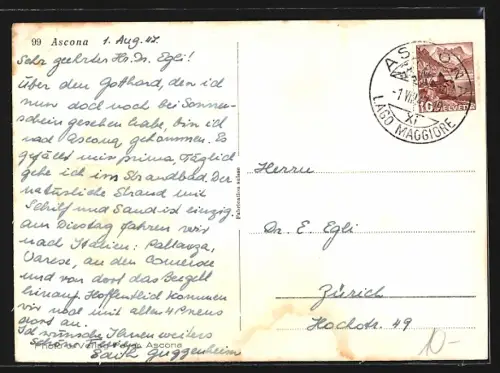 99 Ascona 1. Aug. 47.
Sehr geehrter Hr. Dr. Egli!
Über den Gotthard, den ich
nun doch noch bei Sonnen-
schein gesehen habe, bin ich
nach Ascona gekommen. Es
gefällt mir prima. Täglich
gehe ich ins Strandbad. Der
natürliche Strand mit
Schilf und Sand ist einzig.
Am Dienstag fahren wir
nach Italien: Pallanza,
Varese, an den Comersee
und von dort das Bergell
hinauf. Hoffentlich kommen
wir noch mit allen 4 Pneus
dort an.
Ich wünsche Ihnen weiters
schöne
Photo Ascona
Edith Guggenheim
ASCONA
-1.VIII.47
XI
LAGO MAGGIORE
10 HELVETIA
Herrn
Dr. E. Egli
Zürich
Hochstr. 49
10-